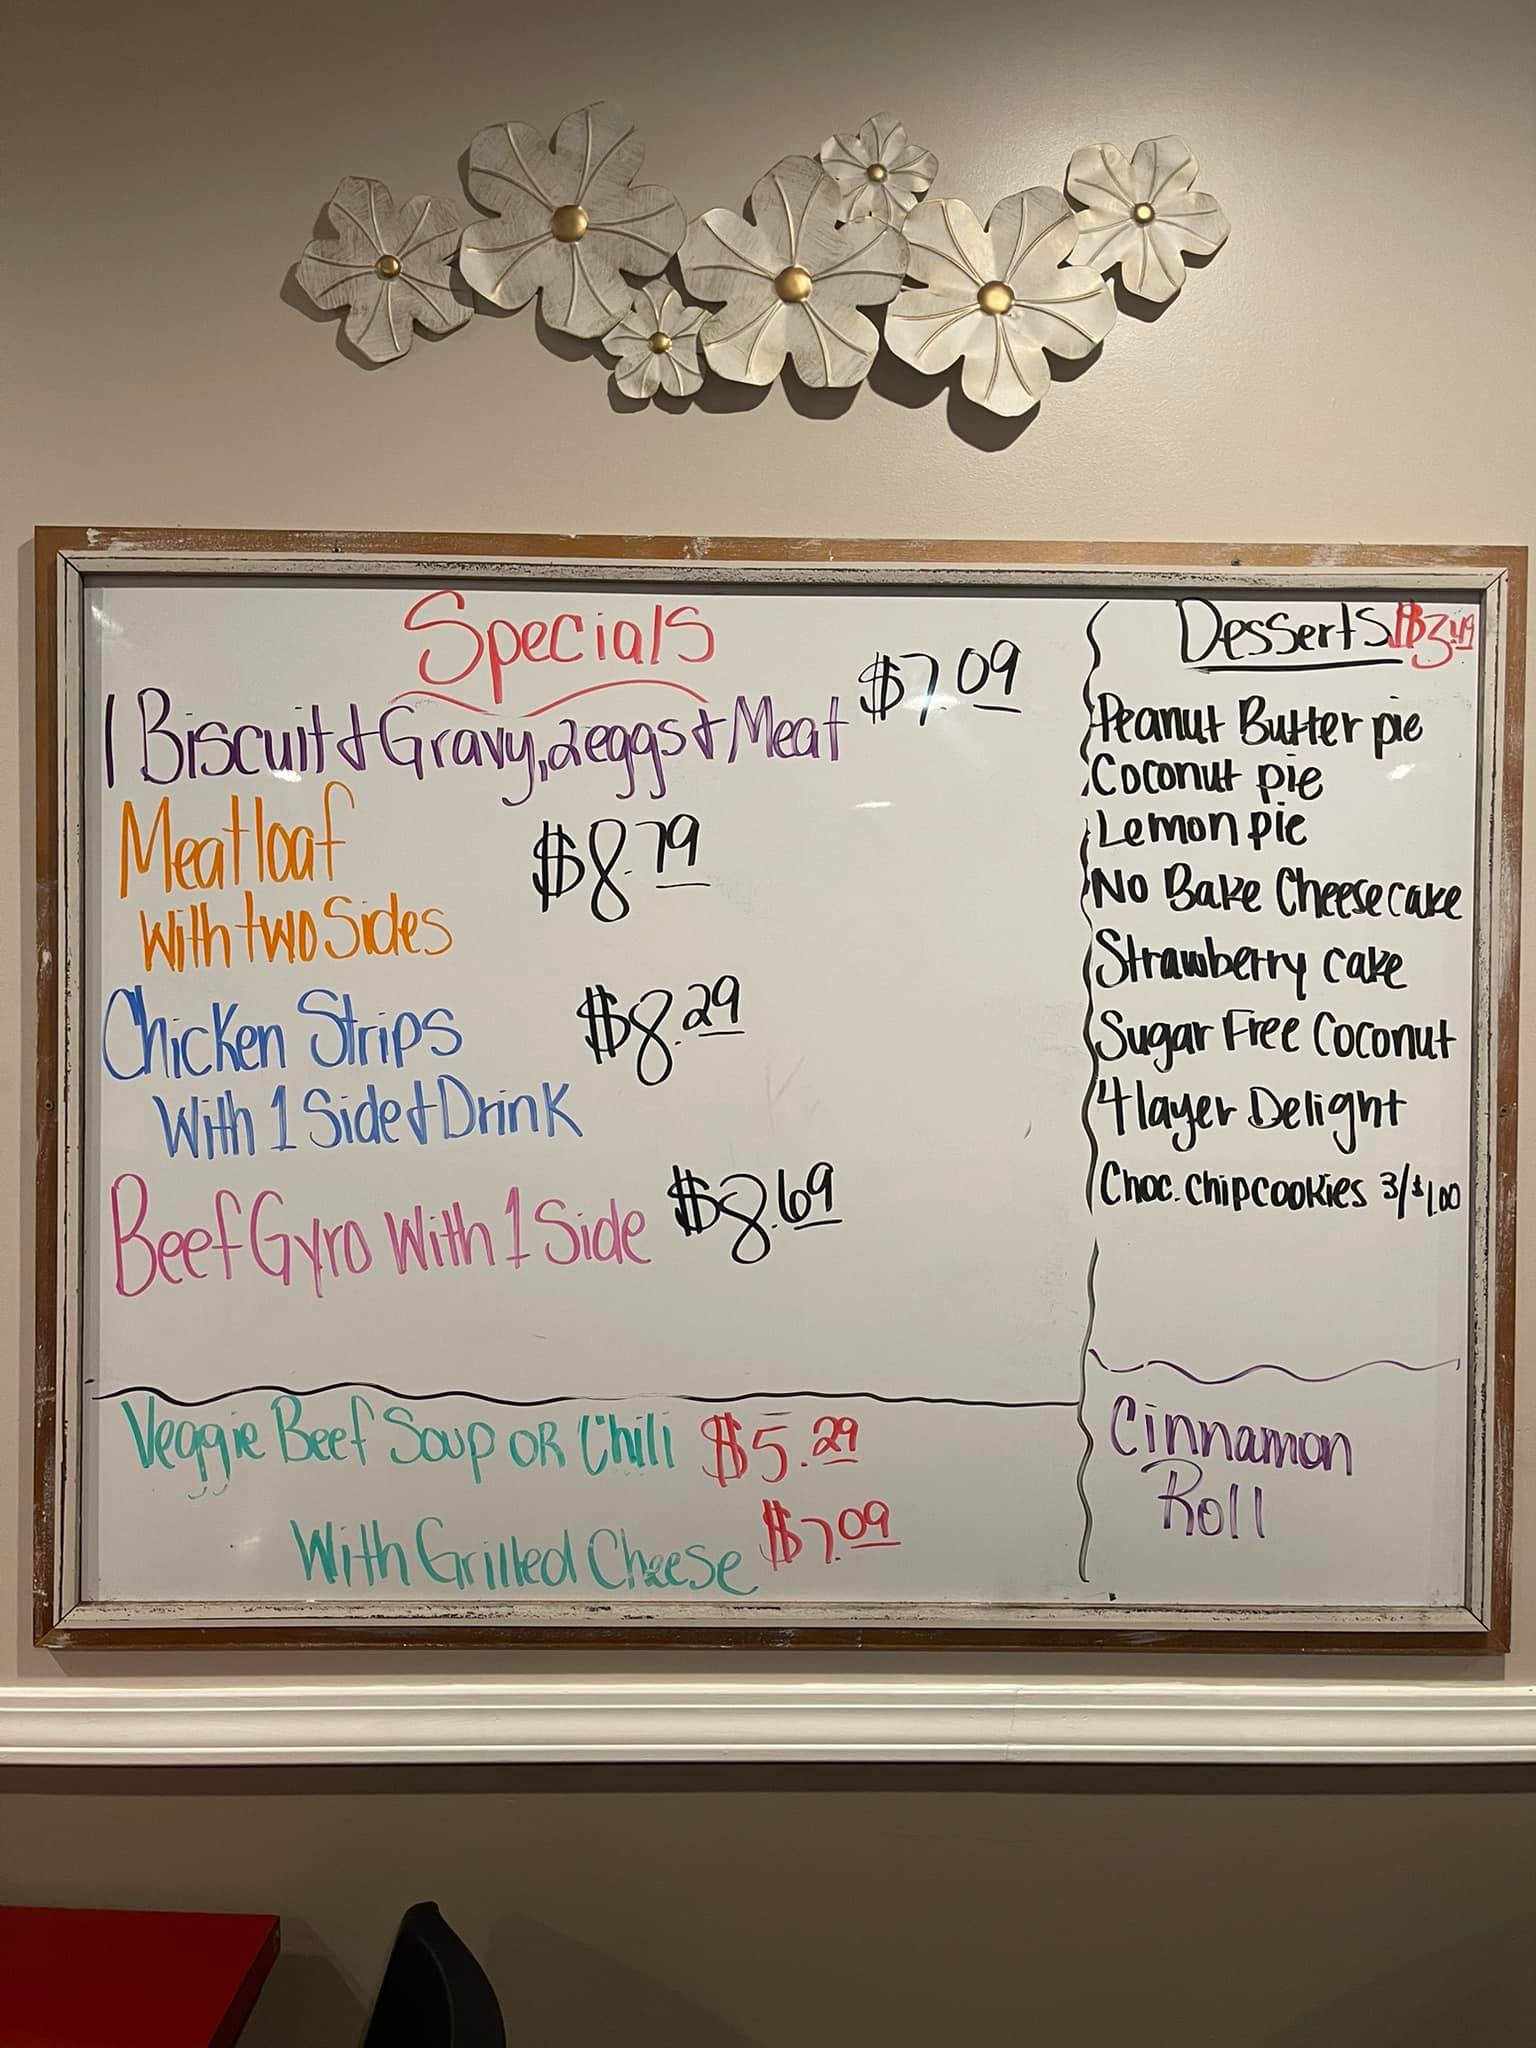 Specials
1 Biscuit & Gravy, 2 eggs & Meat $7.09
Meatloaf $8.79
With two Sides
Chicken Strips $8.29
With 1 Side & Drink
Beef Gyro With 1 Side $8.69
Veggie Beef Soup OR Chili $5.29
With Grilled Cheese $7.09
Desserts $3.49
Peanut Butter pie
Coconut pie
Lemon pie
No Bake Cheesecake
Strawberry cake
Sugar Free Coconut
4 layer Delight
Choc. chip cookies 3/$1.00
Cinnamon
Roll